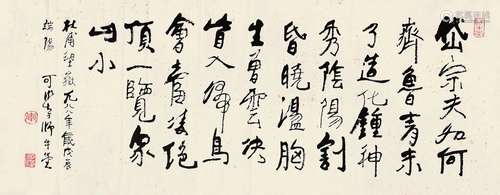 岱宗夫如何
齊魯青未
了造化鍾神
秀陰陽割
昏曉盪胸
生曾雲決
眥入歸鳥
會當凌絕
頂一覽眾
山小
杜甫望嶽 一九八八年歲戊辰
端陽